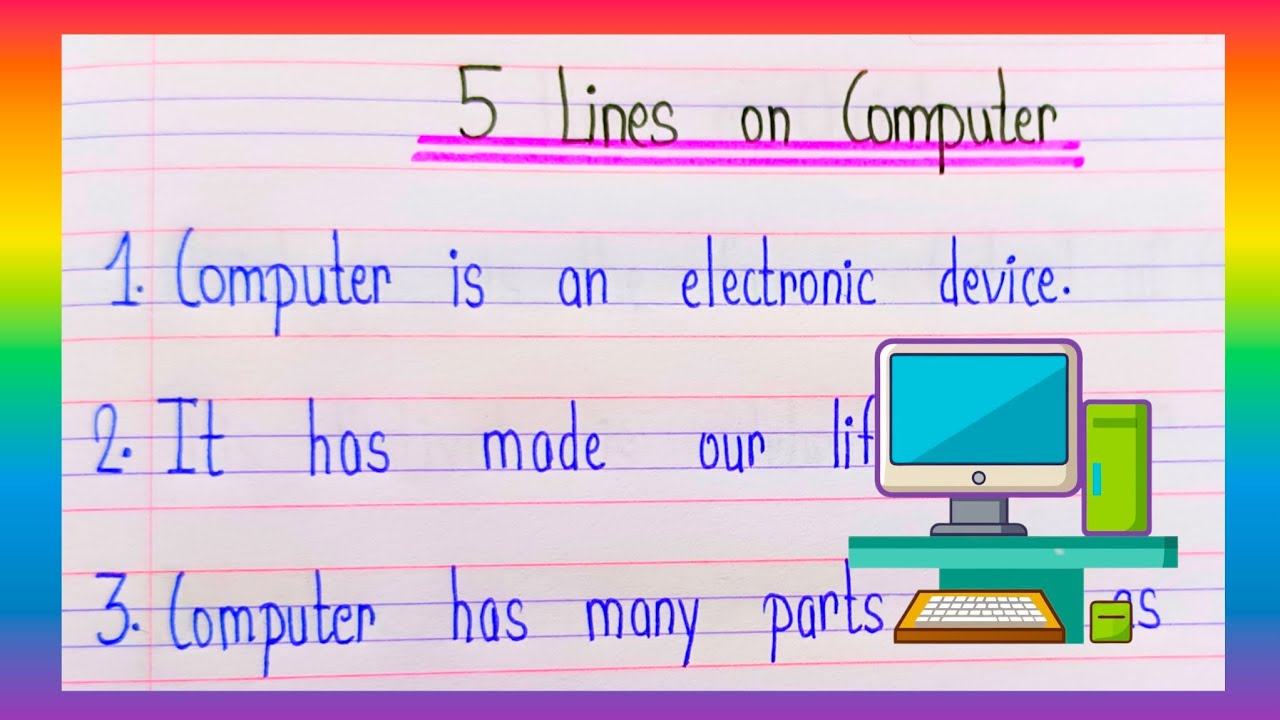 5 Lines on Computer
1. Computer is an electronic device.
2. It has made our
3. Computer has many parts